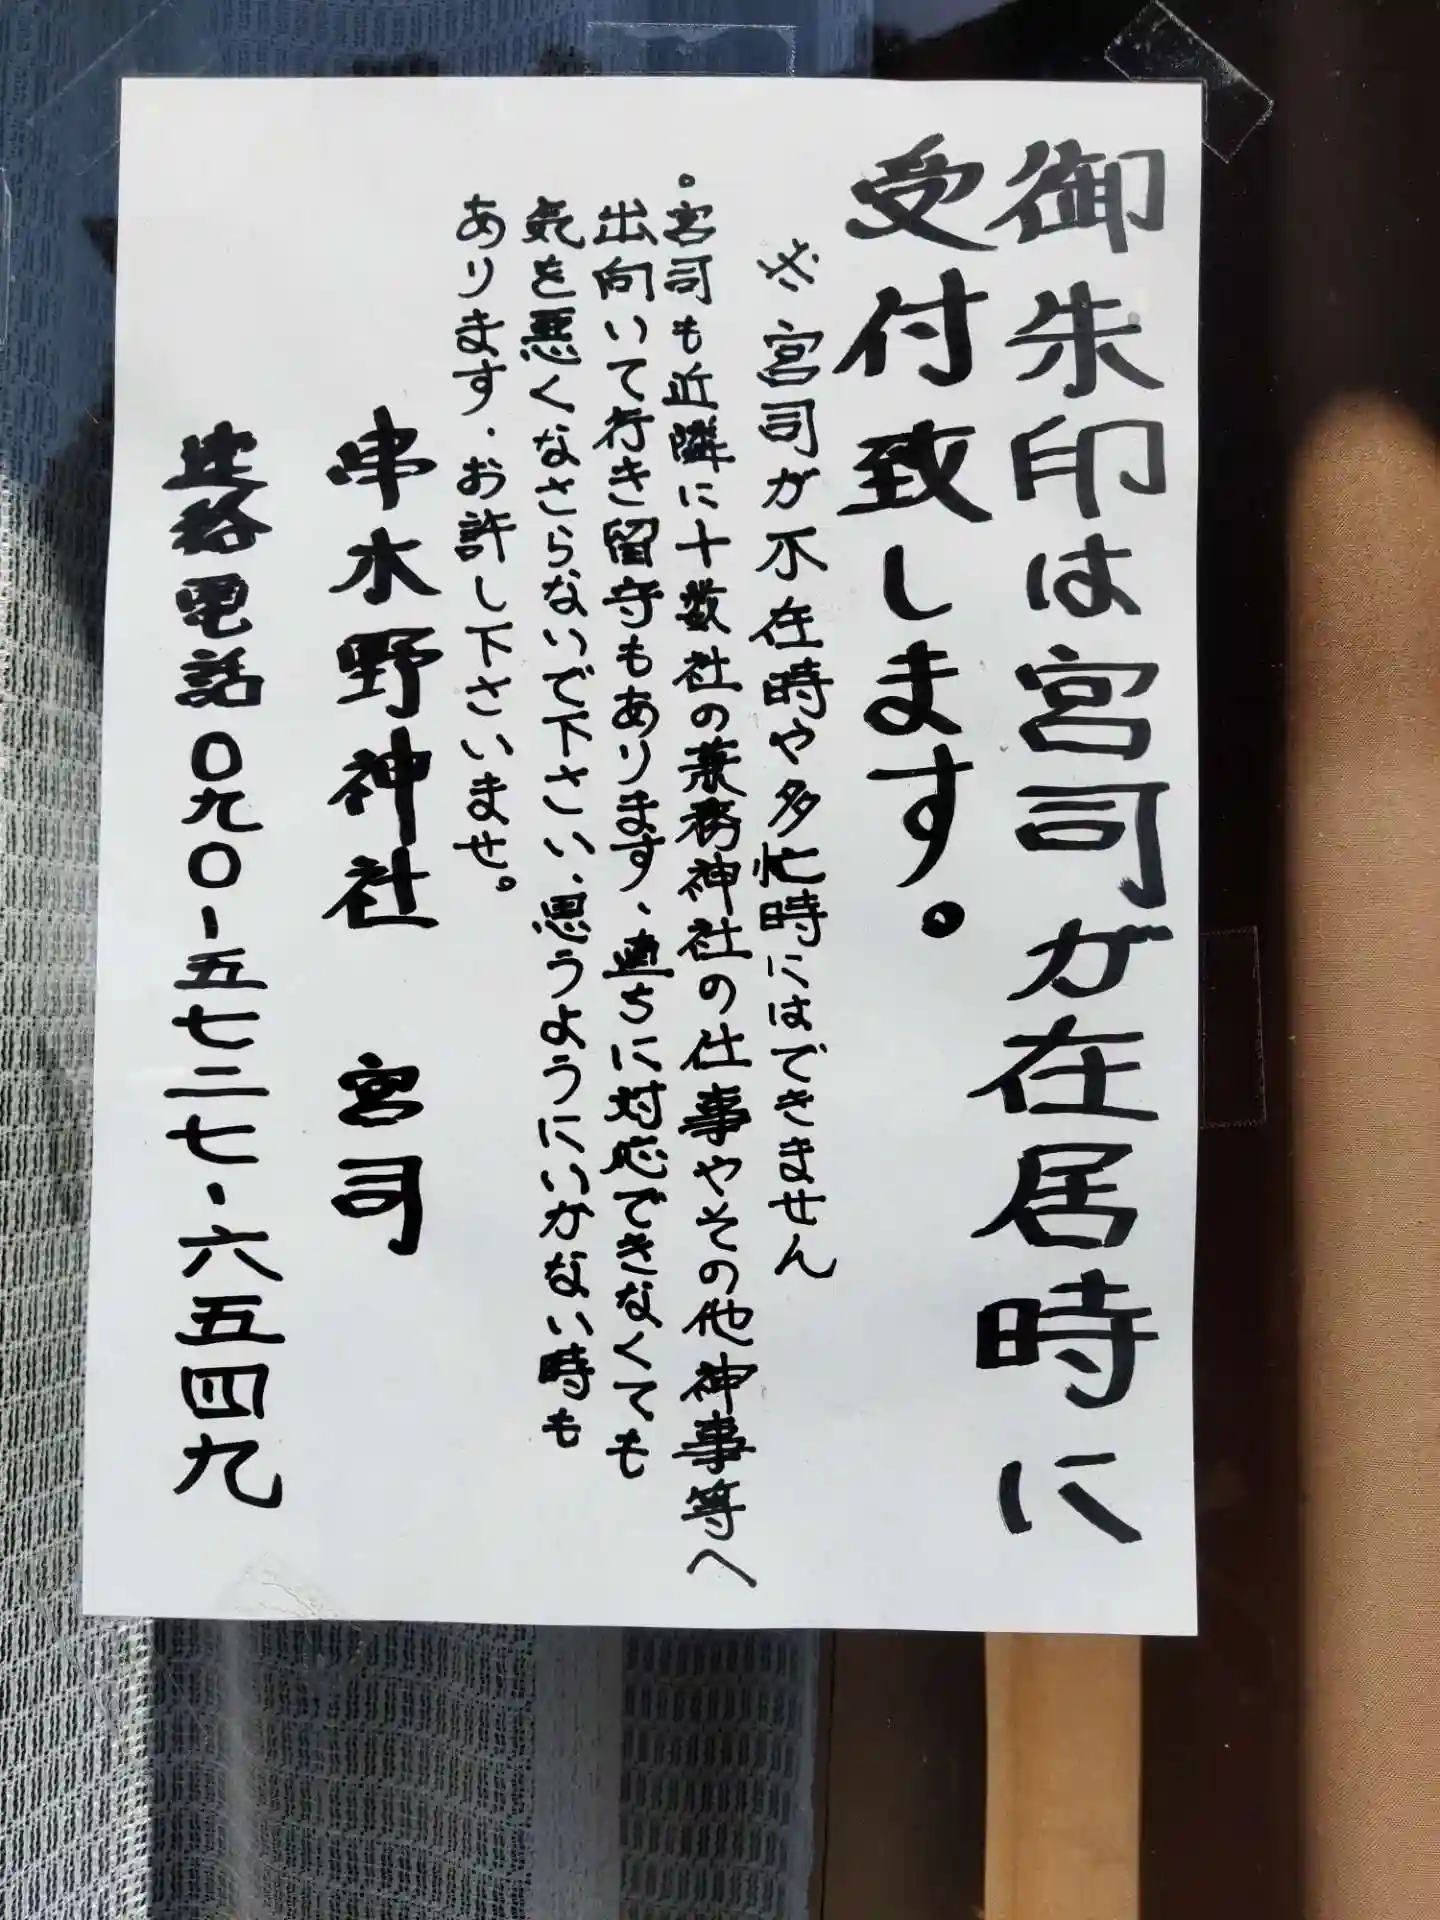 御朱印は宮司が在居時に
受付致します。
※宮司が不在時や多忙時にはできません
。宮司も近隣に十数社の兼務神社の仕事やその他神事等へ
出向いて行き留守もあります、直ちに対応できなくても
気を悪くなさらないで下さい、思うようにいかない時も
あります、お許し下さいませ。
串水野神社 宮司
連絡電話〇九〇-五七二七-六五四九